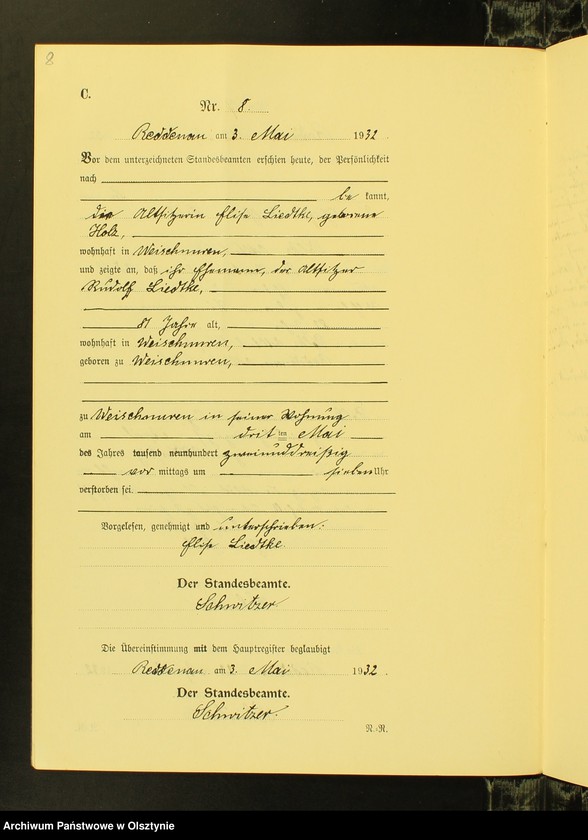 8
C.
Nr. 8.
Reddenau am 3. Mai 1932.
Vor dem unterzeichneten Standesbeamten erschien heute, der Persönlichkeit
nach
be kannt,
die Altsitzerin Elise Liedtke, geborene
wohnhaft in Weischnuren,
und zeigte an, daß ihr Ehemann, der Altsitzer
Rudolf Liedtke,
81 Jahre alt,
wohnhaft in Weischnuren,
geboren zu Weischnuren,
zu Weischnuren in seiner Wohnung
am dritten Mai
des Jahres tausend neunhundert zweiunddreißig
vor mittags um sieben Uhr
verstorben sei.
Vorgelesen, genehmigt und unterschrieben:
Elise Liedtke
Der Standesbeamte.
Schwitzer
Die Übereinstimmung mit dem Hauptregister beglaubigt
Reddenau am 3. Mai 1932.
Der Standesbeamte.
Schwitzer.
N.-R.
Archiwum Państwowe w Olsztynie